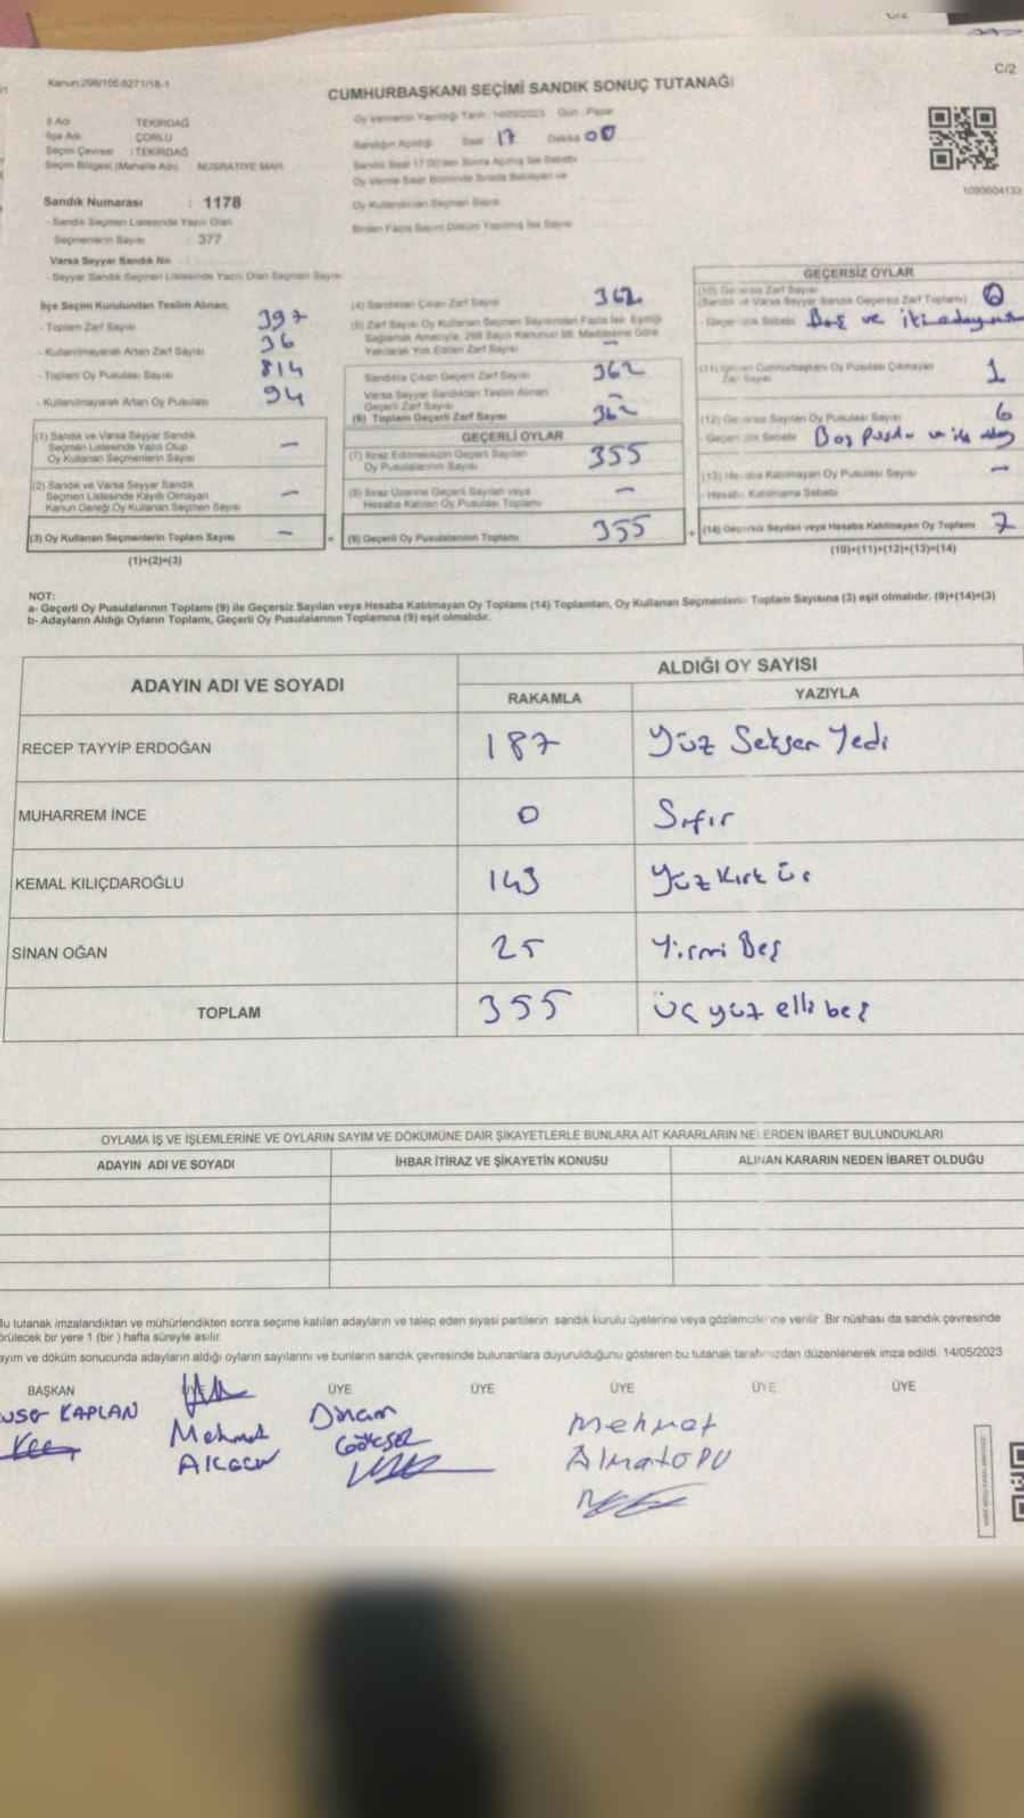 C/2
Kanun:298/105-6271/18-1
CUMHURBAŞKANI SEÇİMİ SANDIK SONUÇ TUTANAĞI
İl Adı TEKİRDAĞ
İlçe Adı ÇORLU
Seçim Çevresi : TEKİRDAĞ
Seçim Bölgesi (Mahalle Adı) NUSRATİYE MAH.
Oy Vermenin Yapıldığı Tarih 14/05/2023 Gün : Pazar
Sandığın Açıldığı Saat 17 Dakika 00
Sandık Saat 17:00'den Sonra Açılmış İse Sebebi
Sandık Numarası : 1178
- Sandık Seçmen Listesinde Yazılı Olan
Seçmenlerin Sayısı : 377
Varsa Seyyar Sandık No
- Seyyar Sandık Seçmen Listesinde Yazılı Olan Seçmen Sayısı
İlçe Seçim Kurulundan Teslim Alınan;
- Toplam Zarf Sayısı 397
- Kullanılmayarak Artan Zarf Sayısı 36
- Toplam Oy Pusulası Sayısı 814
- Kullanılmayarak Artan Oy Pusulası 94
(1) Sandık ve Varsa Seyyar Sandık
Seçmen Listesinde Yazılı Olup
Oy Kullanan Seçmenlerin Sayısı –
(2) Sandık ve Varsa Seyyar Sandık
Seçmen Listesinde Kayıtlı Olmayan
Kanun Gereği Oy Kullanan Seçmen Sayısı –
(3) Oy Kullanan Seçmenlerin Toplam Sayısı –
(1)+(2)=(3)
(4) Sandıktan Çıkan Zarf Sayısı 362
(5) Zarf Sayısı Oy Kullanan Seçmen Sayısından Fazla İse, Eşitliği
Sağlamak Amacıyla, 298 Sayılı Kanunun 98. Maddesine Göre
Yakılarak Yok Edilen Zarf Sayısı –
Sandıkta Çıkan Geçerli Zarf Sayısı 362
Varsa Seyyar Sandıktan Teslim Alınan
Geçerli Zarf Sayısı
(6) Toplam Geçerli Zarf Sayısı 362
GEÇERLİ OYLAR
(7) İtiraz Edilmeksizin Geçerli Sayılan
Oy Pusulalarının Sayısı 355
(8) İtiraz Üzerine Geçerli Sayılan veya
Hesaba Katılan Oy Pusulası Toplamı –
(9) Geçerli Oy Pusulalarının Toplamı 355
GEÇERSİZ OYLAR
(10) Geçersiz Zarf Sayısı
(Sandık ve Varsa Seyyar Sandık Geçersiz Zarf Toplamı)
1
(12) Geçersiz Sayılan Oy Pusulası Sayısı 6
(13) Hesaba Katılmayan Oy Pusulası Sayısı –
- Hesaba Katılmama Sebebi
(14) Geçersiz Sayılan veya Hesaba Katılmayan Oy Toplamı 7
(10)+(11)+(12)+(13)=(14)
NOT:
a- Geçerli Oy Pusulalarının Toplamı (9) ile Geçersiz Sayılan veya Hesaba Katılmayan Oy Toplamı (14) Toplamları, Oy Kullanan Seçmenlerin Toplam Sayısına (3) eşit olmalıdır. (9)+(14)=(3)
b- Adayların Aldığı Oyların Toplamı, Geçerli Oy Pusulalarının Toplamına (9) eşit olmalıdır.
ADAYIN ADI VE SOYADI ALDIĞI OY SAYISI
RAKAMLA YAZIYLA
RECEP TAYYİP ERDOĞAN 187 Yüz Seksen Yedi
MUHARREM İNCE 0 Sıfır
KEMAL KILIÇDAROĞLU 143 Yüz Kırk üç
SİNAN OĞAN 25 Yirmi Beş
TOPLAM 355 üç yüz elli beş
OYLAMA İŞ VE İŞLEMLERİNE VE OYLARIN SAYIM VE DÖKÜMÜNE DAİR ŞİKAYETLERLE BUNLARA AİT KARARLARIN NELERDEN İBARET BULUNDUKLARI
ADAYIN ADI VE SOYADI İHBAR İTİRAZ VE ŞİKAYETİN KONUSU ALINAN KARARIN NEDEN İBARET OLDUĞU
Bu tutanak imzalandıktan ve mühürlendikten sonra seçime katılan adayların ve talep eden siyasi partilerin sandık kurulu üyelerine veya gözlemcilerine verilir. Bir nüshası da sandık çevresinde
görülecek bir yere 1 (bir ) hafta süreyle asılır.
Sayım ve döküm sonucunda adayların aldığı oyların sayılarını ve bunların sandık çevresinde bulunanlara duyurulduğunu gösteren bu tutanak tarafımızdan düzenlenerek imza edildi. 14/05/2023
BAŞKAN ÜYE ÜYE ÜYE ÜYE ÜYE
KAPLAN Mehmet Göksel Mehmet